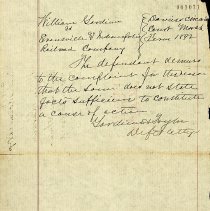 William Gordium
vs
Evansville & Indianapolis
Railroad Company
Daviess Circuit
Court March
Term 1892
The defendant demurs
to the complaint for the reason
that the same does not state
facts sufficient to constitute
a cause of action
Gardiner & Taylor
Deft atty